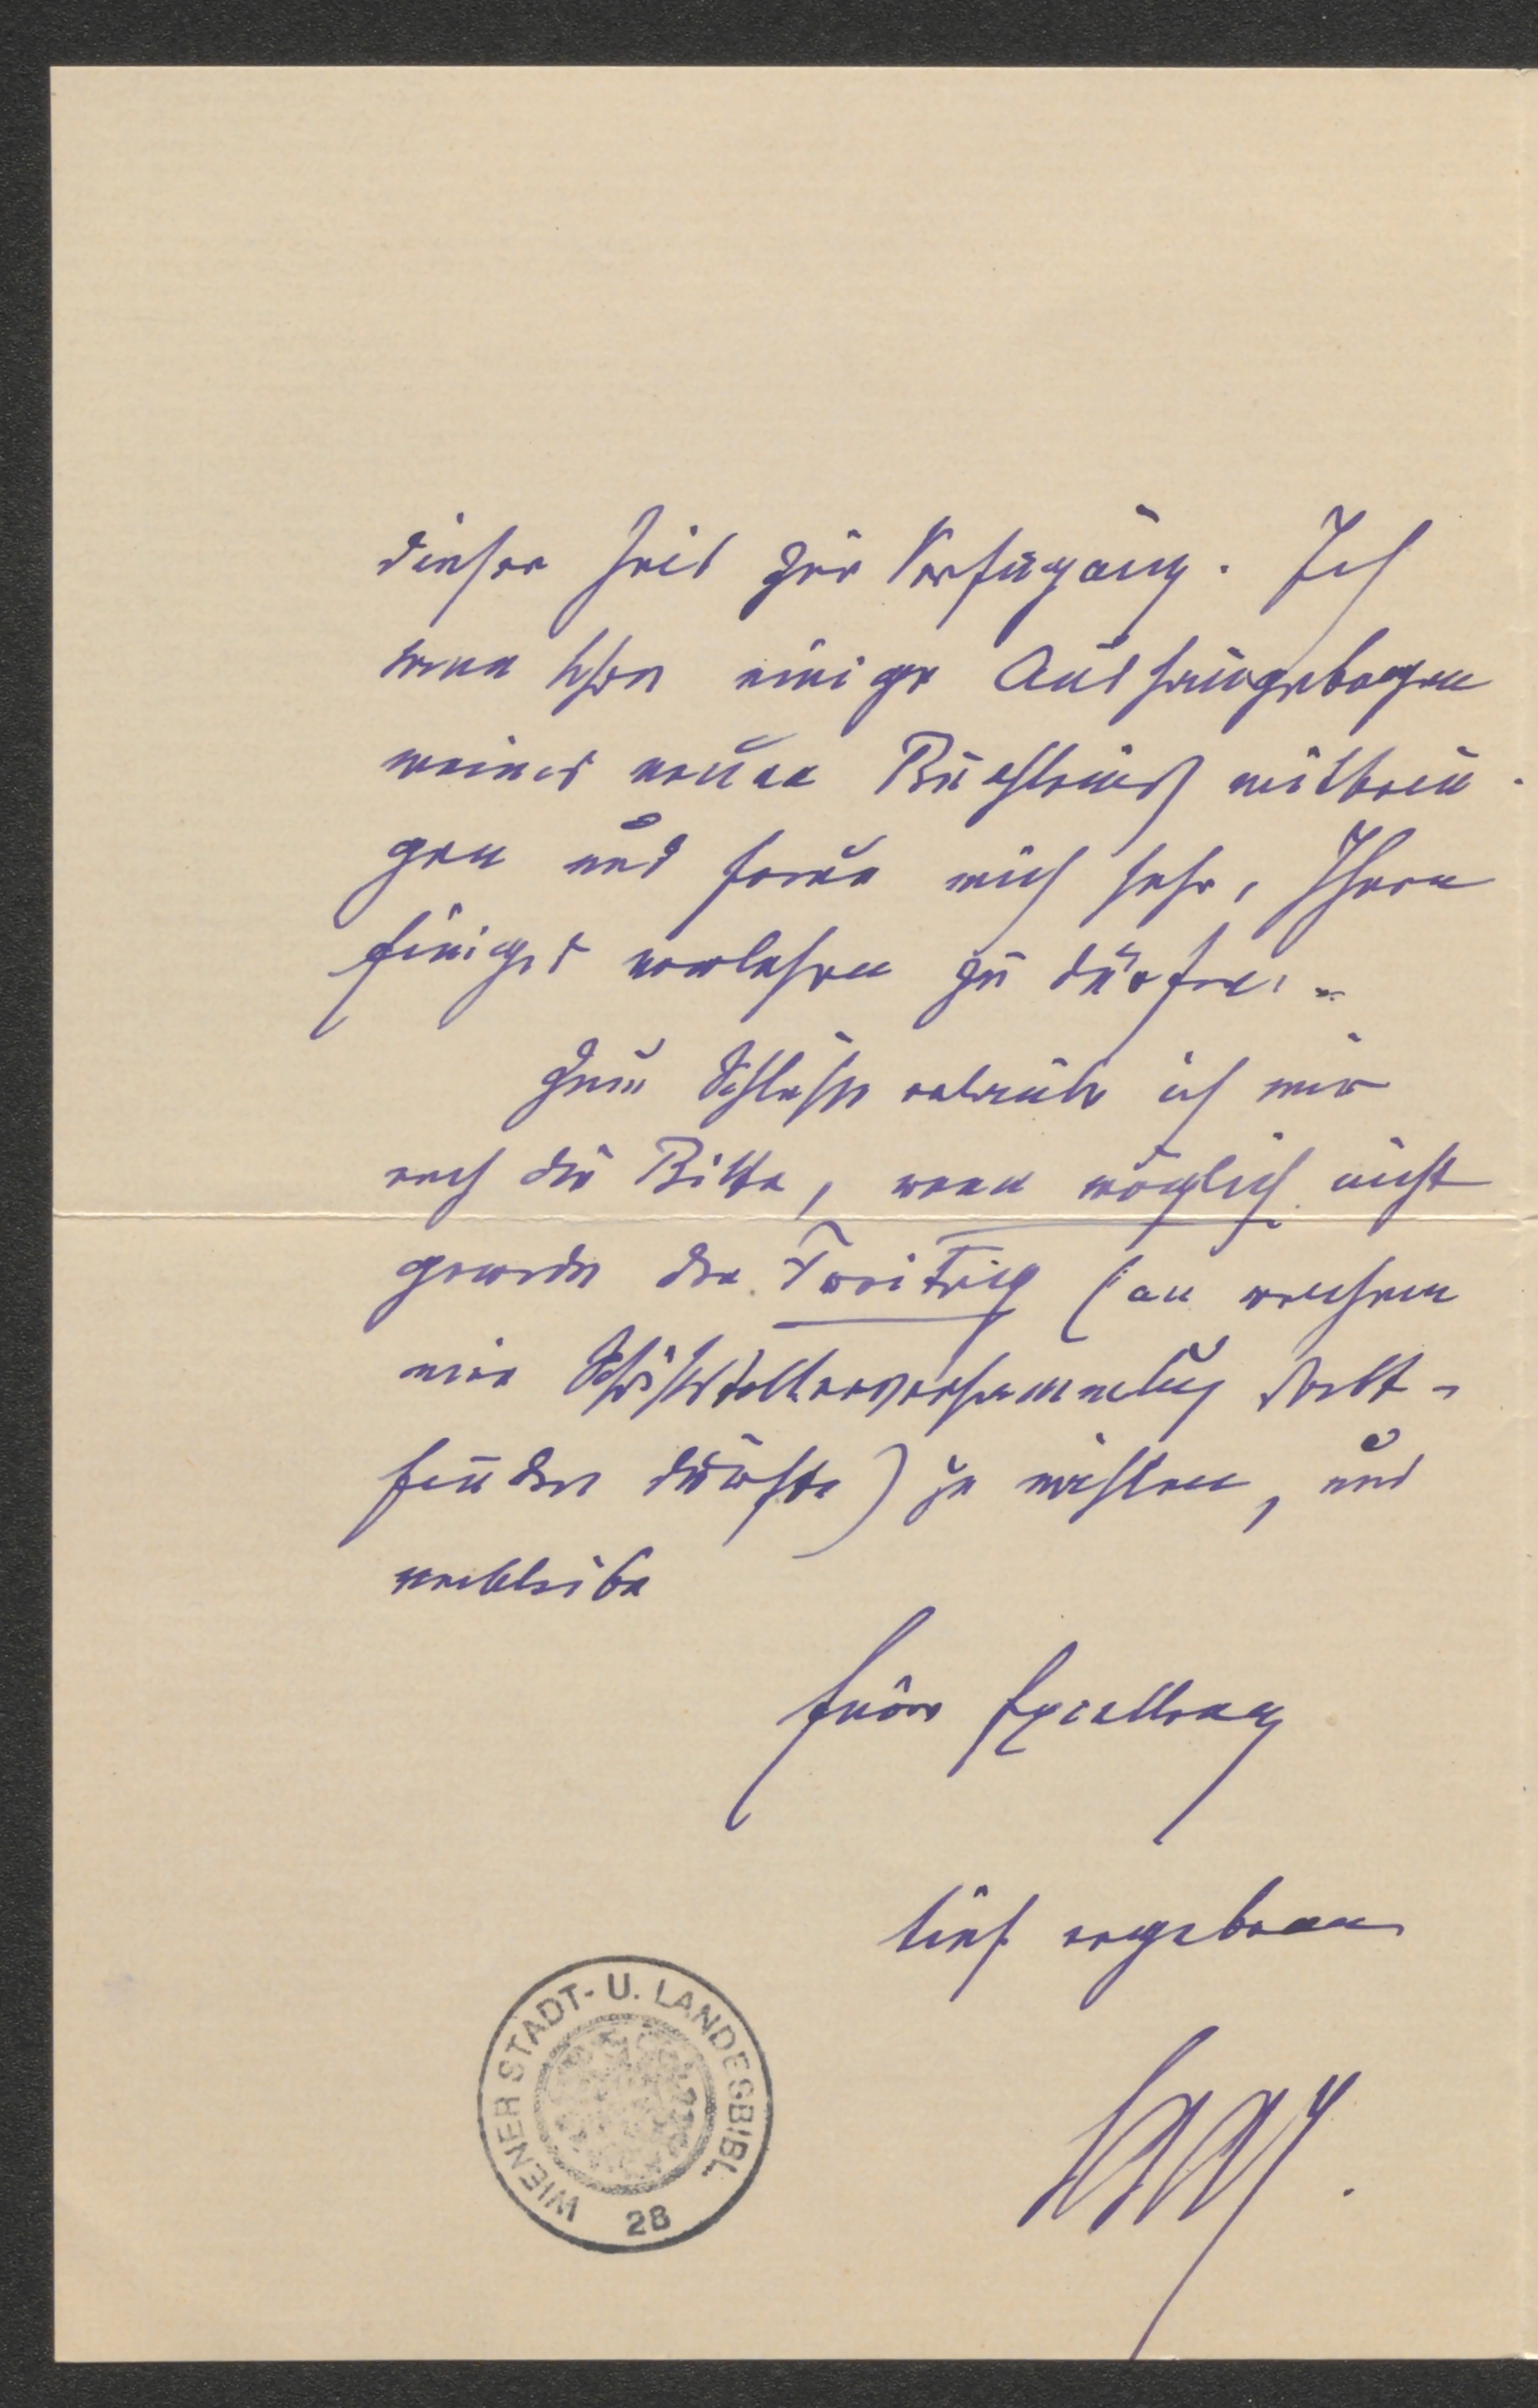 dieser Zeit zur Verfügung. Ich
kann schon einige Aushängebogen
meines neuen Büchleins mitbrin-
gen und freue mich sehr, Ihnen
Einiges vorlesen zu dürfen. –
Zum Schlusse erlaube ich mir
noch die Bitte, wenn möglich nicht
gerade den Freitag (an welchem
eine Schriftstellerversammlung statt-
finden dürfte) zu wählen, und
verbleibe
Euer Excellenz
tief ergebener
WIENER STADT- U. LANDESBIBL.
28